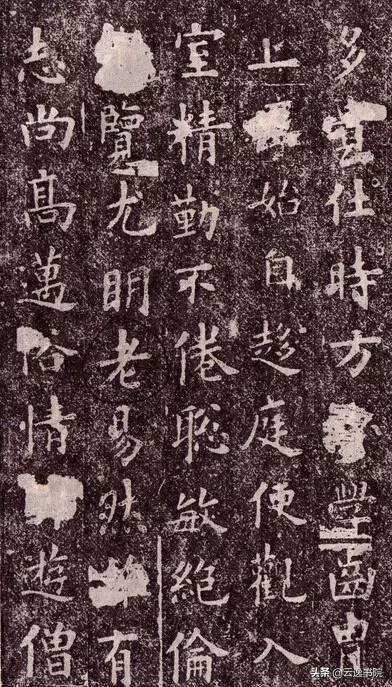 多宦仕時方學齒胄
上始自趍庭便觀入
室精勤不倦聦敏絕倫
覽尤明老易然有
志尚髙邁俗情遊僧
头条 @云逸书院